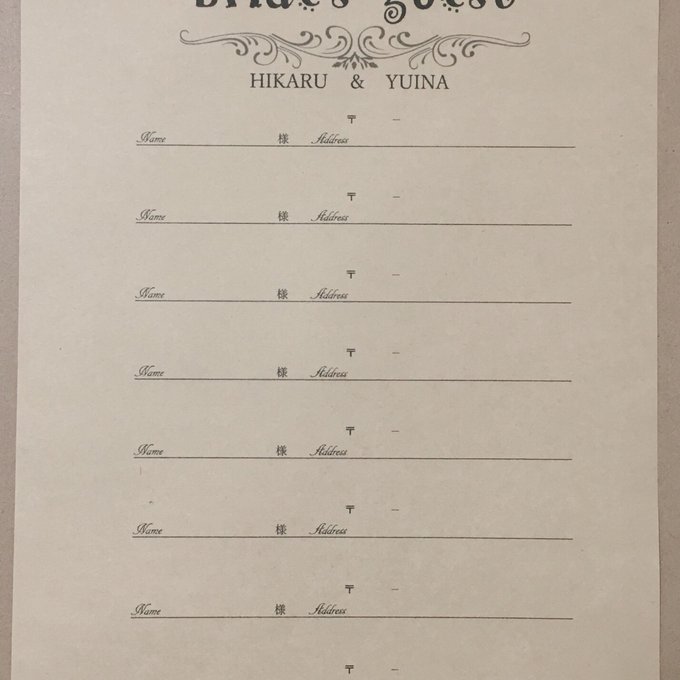 Bride's guest
HIKARU & YUINA
〒 －
Name 様 Address
〒 －
Name 様 Address
〒 －
Name 様 Address
〒 －
Name 様 Address
〒 －
Name 様 Address
〒 －
Name 様 Address
〒 －
Name 様 Address
〒 －